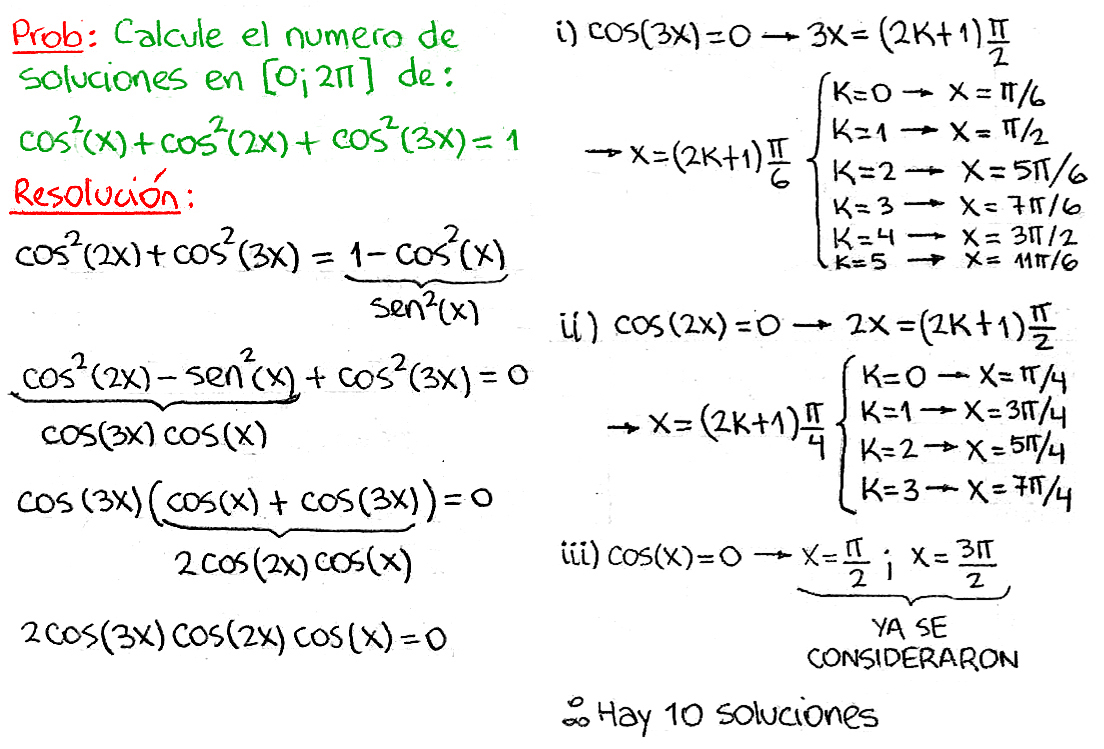 Prob: Calcule el numero de
soluciones en [0; 2π] de:
cos²(x) + cos²(2x) + cos²(3x) = 1
Resolución:
cos²(2x) + cos²(3x) = 1 - cos²(x)
sen²(x)
cos²(2x) - sen²(x) + cos²(3x) = 0
cos(3x) cos(x)
cos(3x)(cos(x) + cos(3x)) = 0
2cos(2x) cos(x)
2cos(3x) cos(2x) cos(x) = 0
i) cos(3x) = 0 → 3x = (2K+1) π/2
→ x = (2K+1) π/6
K=0 → x = π/6
K=1 → x = π/2
K=2 → x = 5π/6
K=3 → x = 7π/6
K=4 → x = 3π/2
K=5 → x = 11π/6
ii) cos(2x) = 0 → 2x = (2K+1) π/2
→ x = (2K+1) π/4
K=0 → x = π/4
K=1 → x = 3π/4
K=2 → x = 5π/4
K=3 → x = 7π/4
iii) cos(x) = 0 → x = π/2 ; x = 3π/2
YA SE
CONSIDERARON
∴ Hay 10 soluciones